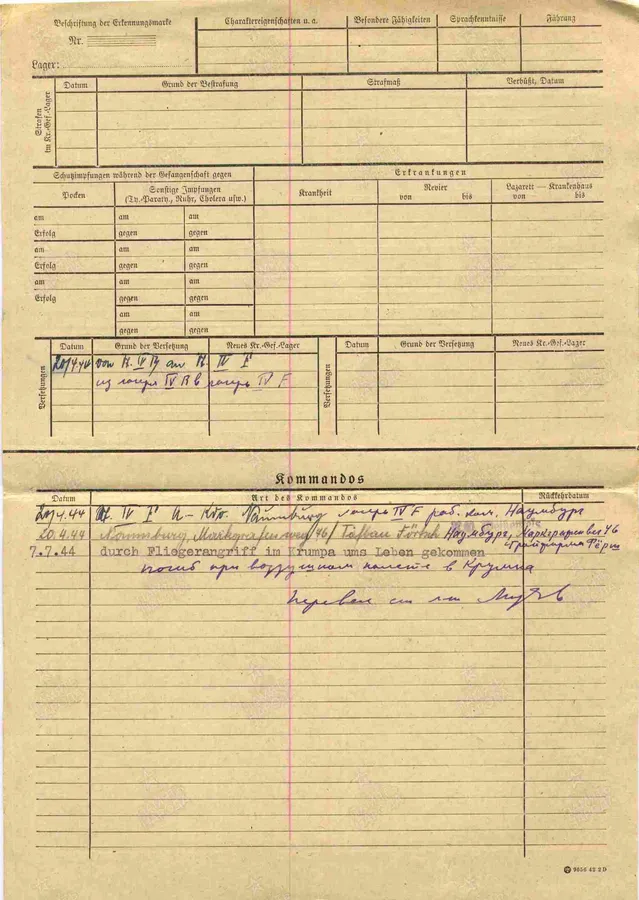 Beschriftung der Erkennungsmarke
Nr.
Lager:
Charaktereigenschaften u. a.
Besondere Fähigkeiten
Sprachkenntnisse
Führung
Strafen im Kr.-Gef.-Lager
Datum
Grund der Bestrafung
Strafmaß
Verbüßt, Datum
Schutzimpfungen während der Gefangenschaft gegen
Erkrankungen
Pocken
Sonstige Impfungen
(Ty.-Paraty., Ruhr, Cholera usw.)
Krankheit
Revier
von bis
Lazarett — Krankenhaus
von bis
am am am
Erfolg gegen gegen
am am am
Erfolg gegen gegen
am am am
Erfolg gegen gegen
am am
gegen gegen
Versetzungen
Datum Grund der Versetzung Neues Kr.-Gef.-Lager
20/4.44 von IV B an IV F
из лагеря IV B в лагерь IV F
Versetzungen
Datum Grund der Versetzung Neues Kr.-Gef.-Lager
Kommandos
Datum Art des Kommandos Rückkehrdatum
20/4.44 IV F Naumburg лагерь IV F раб. ком. Наумбург
20.4.44 Naumburg, Markgrafenweg 46/ Tiefbau Наумбург, Маркграфенвег 46
7.7.44 durch Fliegerangriff im Krumpa ums Leben gekommen
погиб при воздушном налете в Крумпа
Перевел
9656 42 2 D